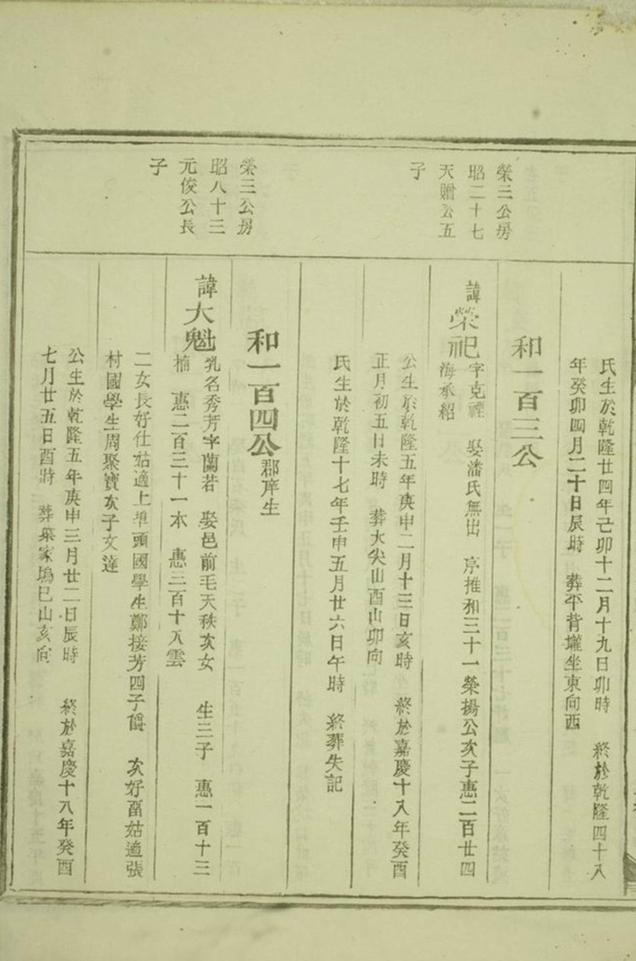 氏生於乾隆廿四年己卯十二月十九日卯時 終於乾隆四十八
年癸卯四月二十日辰時 葬平背壠坐東向西
榮三公房
昭二十七
天贈公五
子
和一百三公
諱榮祀字克禋 娶潘氏無出 序推和三十一榮揚公次子惠二百廿四
海承紹
公生於乾隆五年庚申二月十三日亥時 終於嘉慶十八年癸酉
正月初五日未時 葬大尖山酉山卯向
氏生於乾隆十七年壬申五月廿六日午時 終葬失記
榮三公房
昭八十三
元俊公長
子
和一百四公郡庠生
諱大魁乳名秀芳字蘭若 娶邑前毛天秩次女 生三子 惠一百十三
楠 惠二百三十一本 惠三百十八雲
二女長好仕姑適上埠頭國學生鄭接芳四子爵 次好畱姑適張
村國學生周聚寶次子文達
公生於乾隆五年庚申三月廿二日辰時 終於嘉慶十八年癸酉
七月廿五日酉時 葬葉家塢巳山亥向